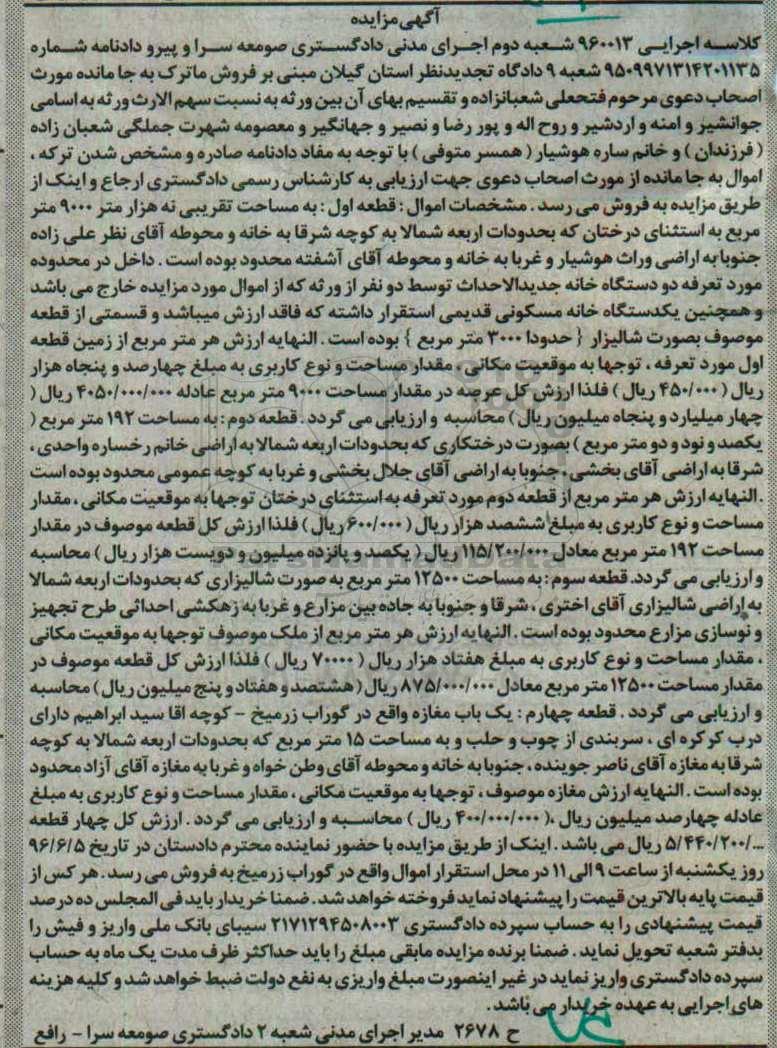 آگهی مزایده
کلاسه اجرایی ۹۶۰۰۱۳ شعبه دوم اجرای مدنی دادگستری صومعه سرا و پیرو دادنامه شماره
۹۵۰۹۹۷۱۳۱۴۲۰۱۱۳۵ شعبه ۹ دادگاه تجدیدنظر استان گیلان مبنی بر فروش ماترک به جا مانده مورث
اصحاب دعوی مرحوم فتحعلی شعبانزاده و تقسیم بهای آن بین ورثه به نسبت سهم الارث ورثه به اسامی
جوانشیر و امنه و اردشیر و روح اله و پور رضا و نصیر و جهانگیر و معصومه شهرت جملگی شعبان زاده
( فرزندان ) و خانم ساره هوشیار ( همسر متوفی ) با توجه به مفاد دادنامه صادره و مشخص شدن ترکه ،
اموال به جا مانده از مورث اصحاب دعوی جهت ارزیابی به کارشناس رسمی دادگستری ارجاع و اینک از
طریق مزایده به فروش می رسد . مشخصات اموال : قطعه اول : به مساحت تقریبی نه هزار متر ۹۰۰۰ متر
مربع به استثنای درختان که بحدودات اربعه شمالا به کوچه شرقا به خانه و محوطه آقای نظر علی زاده
جنوبا به اراضی وراث هوشیار و غربا به خانه و محوطه آقای آشفته محدود بوده است . داخل در محدوده
مورد تعرفه دو دستگاه خانه جدیدالاحداث توسط دو نفر از ورثه که از اموال مورد مزایده خارج می باشد
و همچنین یکدستگاه خانه مسکونی قدیمی استقرار داشته که فاقد ارزش میباشد و قسمتی از قطعه
موصوف بصورت شالیزار { حدودا ۳۰۰۰ متر مربع } بوده است . النهایه ارزش هر متر مربع از زمین قطعه
اول مورد تعرفه ، توجها به موقعیت مکانی ، مقدار مساحت و نوع کاربری به مبلغ چهارصد و پنجاه هزار
ریال ( ۴۵۰/۰۰۰ ریال ) فلذا ارزش کل عرصه در مقدار مساحت ۹۰۰۰ متر مربع عادله ۴۰۵۰/۰۰۰/۰۰۰ ریال (
چهار میلیارد و پنجاه میلیون ریال ) محاسبه و ارزیابی می گردد . قطعه دوم : به مساحت ۱۹۲ متر مربع (
یکصد و نود و دو متر مربع ) بصورت درختکاری که بحدودات اربعه شمالا به اراضی خانم رخساره واحدی ،
شرقا به اراضی آقای بخشی ، جنوبا به اراضی آقای جلال بخشی و غربا به کوچه عمومی محدود بوده است
. النهایه ارزش هر متر مربع از قطعه دوم مورد تعرفه به استثنای درختان توجها به موقعیت مکانی ، مقدار
مساحت و نوع کاربری به مبلغ ششصد هزار ریال ( ۶۰۰/۰۰۰ ریال ) فلذا ارزش کل قطعه موصوف در مقدار
مساحت ۱۹۲ متر مربع معادل ۱۱۵/۲۰۰/۰۰۰ ریال ( یکصد و پانزده میلیون و دویست هزار ریال ) محاسبه
و ارزیابی می گردد. قطعه سوم : به مساحت ۱۲۵۰۰ متر مربع به صورت شالیزاری که بحدودات اربعه شمالا
به اراضی شالیزاری آقای اختری ، شرقا و جنوبا به جاده بین مزارع و غربا به زهکشی احداثی طرح تجهیز
و نوسازی مزارع محدود بوده است . النهایه ارزش هر متر مربع از ملک موصوف توجها به موقعیت مکانی
، مقدار مساحت و نوع کاربری به مبلغ هفتاد هزار ریال ( ۷۰۰۰۰ ریال ) فلذا ارزش کل قطعه موصوف در
مقدار مساحت ۱۲۵۰۰ متر مربع معادل ۸۷۵/۰۰۰/۰۰۰ ریال ( هشتصد و هفتاد و پنج میلیون ریال ) محاسبه
و ارزیابی می گردد . قطعه چهارم : یک باب مغازه واقع در گوراب زرمیخ - کوچه اقا سید ابراهیم دارای
درب کرکره ای ، سربندی از چوب و حلب و به مساحت ۱۵ متر مربع که بحدودات اربعه شمالا به کوچه
شرقا به مغازه آقای ناصر جوینده ، جنوبا به خانه و محوطه آقای وطن خواه و غربا به مغازه آقای آزاد محدود
بوده است . النهایه ارزش مغازه موصوف ، توجها به موقعیت مکانی ، مقدار مساحت و نوع کاربری به مبلغ
عادله چهارصد میلیون ریال ،( ۴۰۰/۰۰۰/۰۰۰ ریال ) محاسبه و ارزیابی می گردد . ارزش کل چهار قطعه
۵/۴۴۰/۲۰۰/... ریال می باشد . اینک از طریق مزایده با حضور نماینده محترم دادستان در تاریخ ۹۶/۶/۵
روز یکشنبه از ساعت ۹ الی ۱۱ در محل استقرار اموال واقع در گوراب زرمیخ به فروش می رسد . هر کس از
قیمت پایه بالاترین قیمت را پیشنهاد نماید فروخته خواهد شد . ضمنا خریدار باید فی المجلس ده درصد
قیمت پیشنهادی را به حساب سپرده دادگستری ۲۱۷۱۲۹۴۵۰۸۰۰۳ سیبای بانک ملی واریز و فیش را
بدفتر شعبه تحویل نماید . ضمنا برنده مزایده مابقی مبلغ را باید حداکثر ظرف مدت یک ماه به حساب
سپرده دادگستری واریز نماید در غیر اینصورت مبلغ واریزی به نفع دولت ضبط خواهد شد و کلیه هزینه
های اجرایی به عهده خریدار می باشد .
ح ۲۶۷۸ مدیر اجرای مدنی شعبه ۲ دادگستری صومعه سرا - رافع